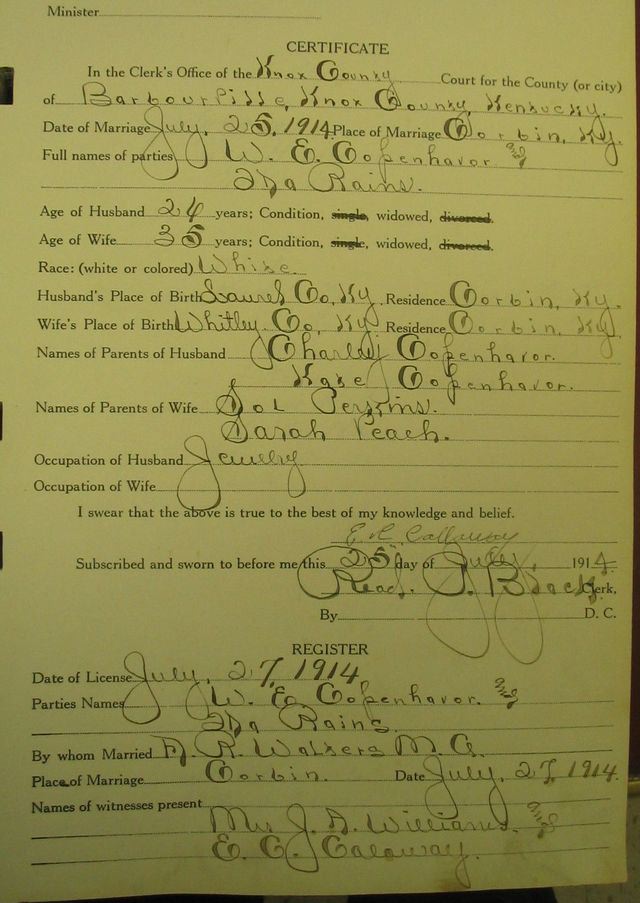 Minister
CERTIFICATE
In the Clerk's Office of the Knox County Court for the County (or city)
of Barbourville, Knox County, Kentucky.
Date of Marriage July, 25, 1914 Place of Marriage Corbin, Ky.
Full names of parties W. E. Copenhavor and
Ida Rains.
Age of Husband 24 years; Condition, single, widowed, divorced.
Age of Wife 35 years; Condition, single, widowed, divorced.
Race: (white or colored) White.
Husband's Place of Birth Laurel Co, Ky. Residence Corbin, Ky.
Wife's Place of Birth Whitley Co, Ky. Residence Corbin, Ky.
Names of Parents of Husband Charley Copenhavor.
Kate Copenhavor.
Names of Parents of Wife Sol Persins.
Sarah Peach.
Occupation of Husband Jewelry
Occupation of Wife
I swear that the above is true to the best of my knowledge and belief.
E. C. Callaway
Subscribed and sworn to before me this 25 day of July, 1914.
Read. P. Black Clerk,
By D. C.
REGISTER
Date of License July, 27, 1914
Parties Names W. E. Copenhavor. and
Ida Rains.
By whom Married R. Walters M. G.
Place of Marriage Corbin. Date July, 27, 1914.
Names of witnesses present
Mrs J. A. Williams. and
E. C. Caloway.